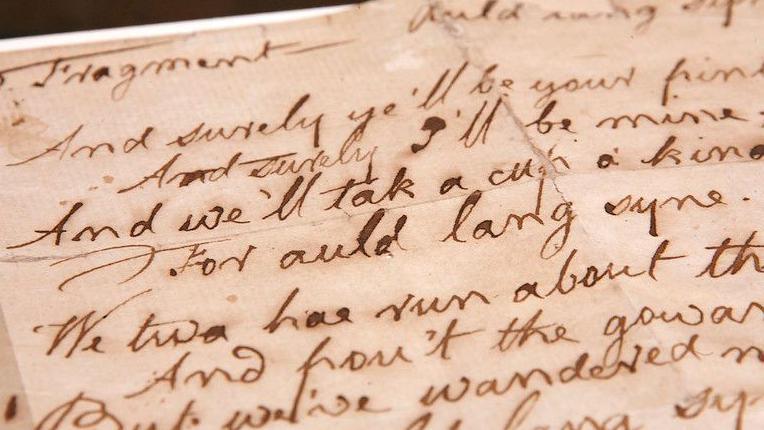 auld lang syn
Fragment
And surely ye'll be your pint
And surely I'll be mine
And we'll tak a cup o kind
For auld lang syne.
We twa hae run about th
And pou't the gowan
But we've wandered m
lang syn